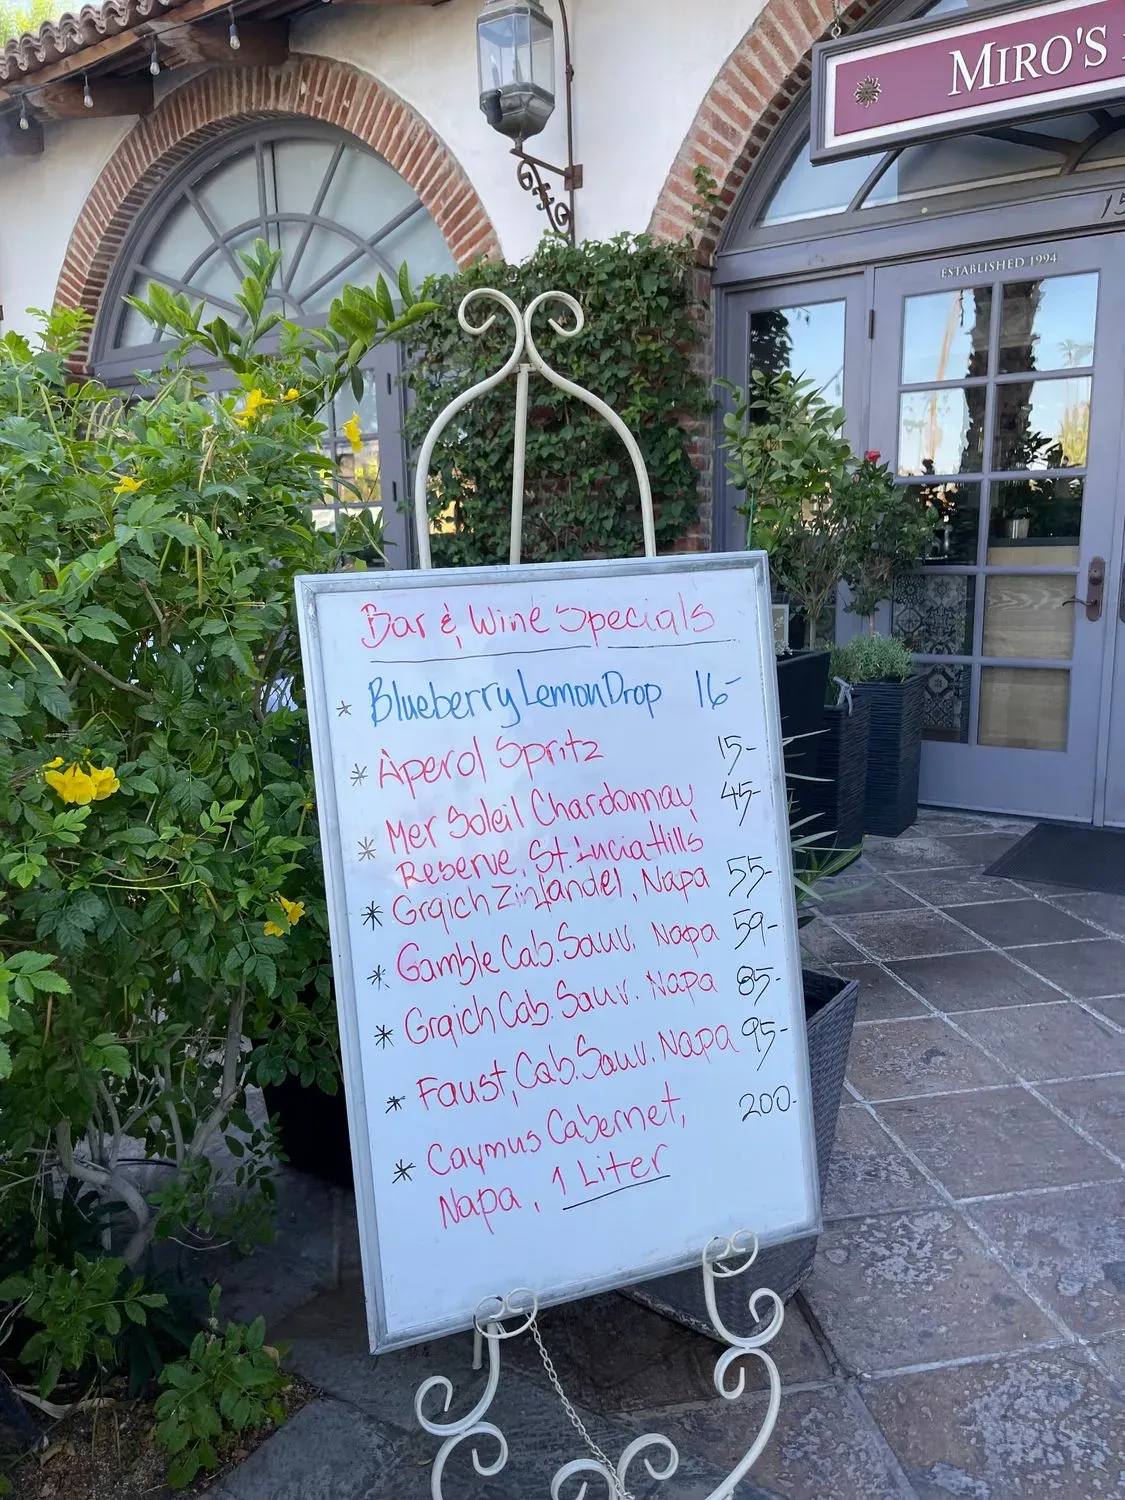 MIRO'S
15
ESTABLISHED 1994
Bar & Wine Specials
* Blueberry Lemon Drop 16-
* Aperol Spritz 15-
* Mer Soleil Chardonnay 45-
Reserve, St. Lucia Hills
* Grgich Zinfandel, Napa 55-
* Gamble Cab. Sauv. Napa 59-
* Grgich Cab. Sauv. Napa 85-
* Faust, Cab. Sauv. Napa 95-
* Caymus Cabernet, 200-
Napa, 1 Liter